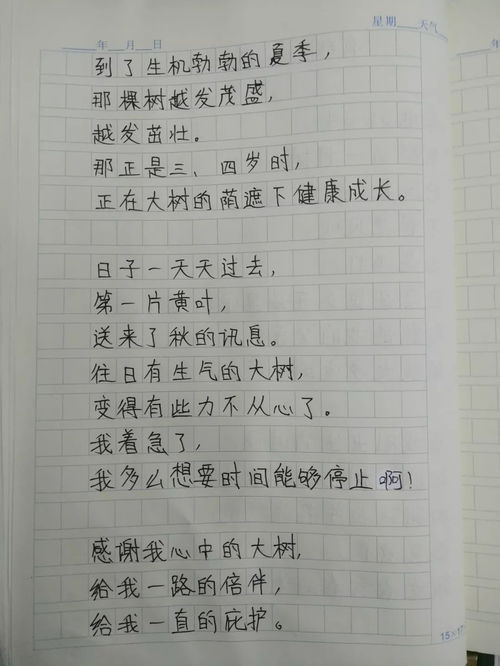 星期____天气
____年__月__日
到了生机勃勃的夏季，
那棵树越发茂盛，
越发茁壮。
那正是三、四岁时，
正在大树的荫遮下健康成长。
日子一天天过去，
第一片黄叶，
送来了秋的讯息。
往日有生气的大树，
变得有些力不从心了。
我着急了，
我多么想要时间能够停止啊！
感谢我心中的大树，
给我一路的倍伴，
给我一直的庇护。